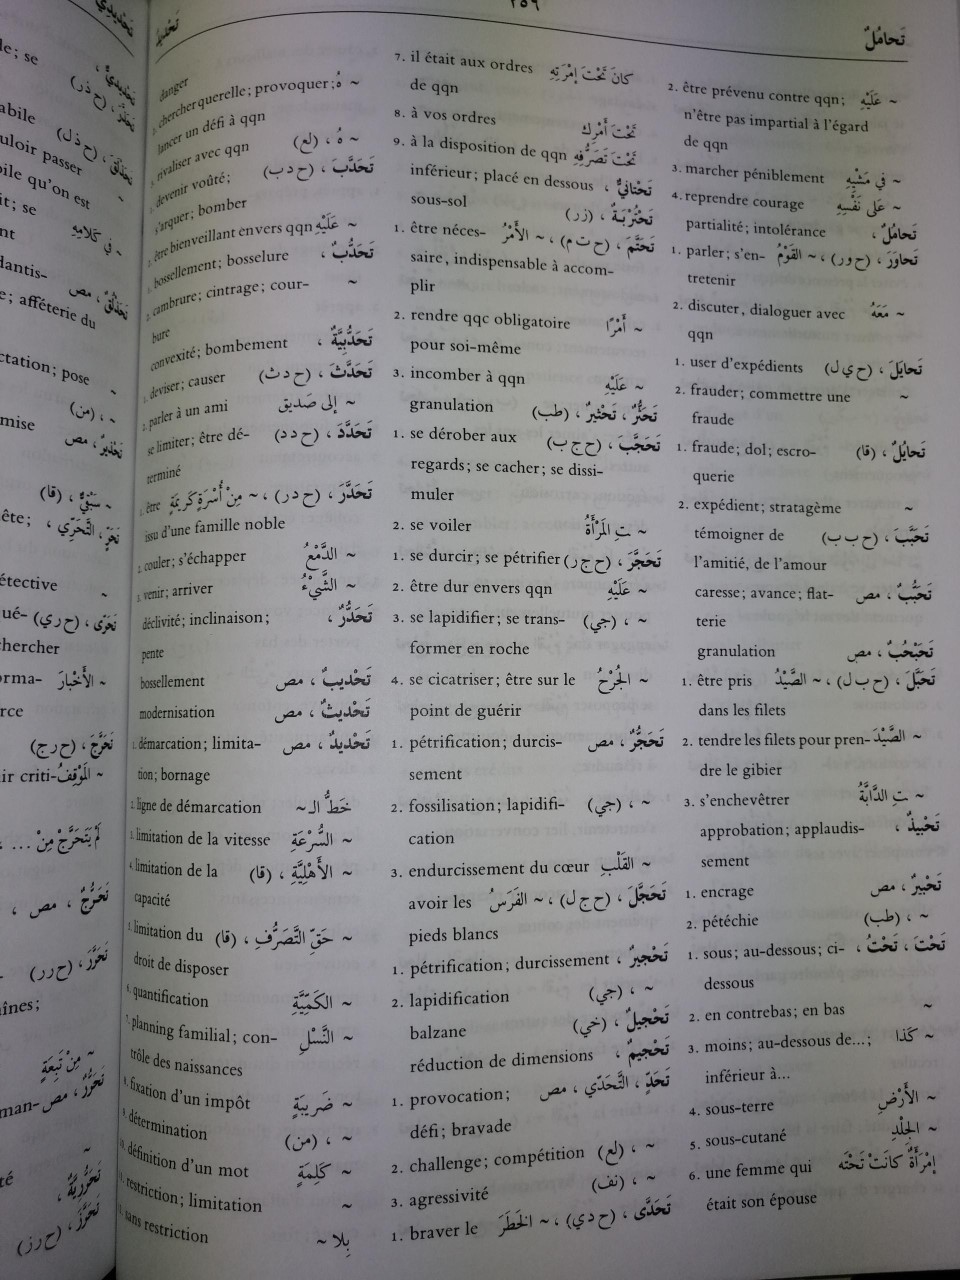 ٢٥٩
تَحامُلٌ
~ عَلَيْهِ 2. être prévenu contre qqn;
n'être pas impartial à l'égard
de qqn
~ في مَشْيِهِ 3. marcher péniblement
~ عَلى نَفْسِهِ 4. reprendre courage
تَحامُلٌ ، partialité; intolérance
تَحاوَرَ ، (ح و ر) ، ~ القَوْمُ 1. parler; s'en-
tretenir
~ مَعَهُ 2. discuter, dialoguer avec
qqn
تَحايَلَ ، (ح ي ل) 1. user d'expédients
~ 2. frauder; commettre une
fraude
تَحايُلٌ ، (قا) 1. fraude; dol; escro-
querie
~ 2. expédient; stratagème
تَحَبَّبَ ، (ح ب ب) témoigner de
l'amitié, de l'amour
تَحَبُّبٌ ، مص caresse; avance; flat-
terie
تَحَبْحُبٌ ، مص granulation
تَحَبَّلَ ، (ح ب ل) ، ~ الصَّيْدُ 1. être pris
dans les filets
~ الصَّيْدَ 2. tendre les filets pour pren-
dre le gibier
~ تِ الدَّابَّةُ 3. s'enchevêtrer
تَحْبيذٌ ، approbation; applaudis-
sement
تَحْبيرٌ ، مص 1. encrage
~ ، (طب) 2. pétéchie
تَحْتَ ، تَحْتُ ، 1. sous; au-dessous; ci-
dessous
~ 2. en contrebas; en bas
~ كَذا 3. moins; au-dessous de...;
inférieur à...
~ الأَرْضِ 4. sous-terre
~ الجِلْدِ 5. sous-cutané
اِمْرَأَةٌ كانَتْ تَحْتَهُ 6. une femme qui
était son épouse
كانَ تَحْتَ إِمْرَتِهِ 7. il était aux ordres
de qqn
تَحْتَ أَمْرِك 8. à vos ordres
تَحْتَ تَصَرُّفِهِ 9. à la disposition de qqn
تَحْتانِيٌّ ، inférieur; placé en dessous
تَحْتُرْبَةٌ ، (زر) sous-sol
تَحَتَّمَ ، (ح ت م) ، ~ الأَمْرُ 1. être néces-
saire, indispensable à accom-
plir
~ أَمْرًا 2. rendre qqc obligatoire
pour soi-même
~ عَلَيْهِ 3. incomber à qqn
تَحَثُّرٌ ، تَحْثيرٌ ، (طب) granulation
تَحَجَّبَ ، (ح ج ب) 1. se dérober aux
regards; se cacher; se dissi-
muler
~ تِ المَرْأَةُ 2. se voiler
تَحَجَّرَ ، (ح ج ر) 1. se durcir; se pétrifier
~ عَلَيْهِ 2. être dur envers qqn
~ ، (جي) 3. se lapidifier; se trans-
former en roche
~ الجُرْحُ 4. se cicatriser; être sur le
point de guérir
تَحَجُّرٌ ، مص 1. pétrification; durcis-
sement
~ ، (جي) 2. fossilisation; lapidifi-
cation
~ القَلْبِ 3. endurcissement du cœur
تَحَجَّلَ ، (ح ج ل) ، ~ الفَرَسُ avoir les
pieds blancs
تَحْجيرٌ ، 1. pétrification; durcissement
~ ، (جي) 2. lapidification
تَحْجيلٌ ، (خي) balzane
تَحْجيمٌ ، réduction de dimensions
تَحَدٍّ ، التَّحَدّي ، مص 1. provocation;
défi; bravade
~ ، (لع) 2. challenge; compétition
~ ، (نف) 3. agressivité
تَحَدَّى ، (ح د ي) ، ~ الخَطَرَ 1. braver le
danger
~ هُ ; chercher querelle; provoquer
lancer un défi à qqn
~ هُ ، (لع) 3. rivaliser avec qqn
تَحَدَّبَ ، (ح د ب) devenir voûté;
s'arquer; bomber
~ عَلَيْهِ 2. être bienveillant envers qqn
تَحَدُّبٌ ، 1. bossellement; bosselure
~ 2. cambrure; cintrage; cour-
bure
تَحَدُّبِيَّةٌ ، convexité; bombement
تَحَدَّثَ ، (ح د ث) 1. deviser; causer
~ إلى صَديق 2. parler à un ami
تَحَدَّدَ ، (ح د د) se limiter; être dé-
terminé
تَحَدَّرَ ، (ح د ر) ، ~ مِنْ أُسْرَةٍ كَريمَةٍ 1. être
issu d'une famille noble
~ الدَّمْعُ 2. couler; s'échapper
~ الشَّيْءُ 3. venir; arriver
تَحَدُّرٌ ، déclivité; inclinaison;
pente
تَحْديبٌ ، مص bossellement
تَحْديثٌ ، مص modernisation
تَحْديدٌ ، مص 1. démarcation; limita-
tion; bornage
خَطُّ الـ ~ 2. ligne de démarcation
~ السُّرْعَةِ 3. limitation de la vitesse
~ الأَهْلِيَّةِ ، (قا) 4. limitation de la
capacité
~ حَقِّ التَّصَرُّفِ ، (قا) 5. limitation du
droit de disposer
~ الكَمِّيَّةِ 6. quantification
~ النَّسْلِ 7. planning familial; con-
trôle des naissances
~ ضَريبَةٍ 8. fixation d'un impôt
~ ، (من) 9. détermination
~ كَلِمَةٍ 10. définition d'un mot
~ 11. restriction; limitation
بِلا ~ 12. sans restriction